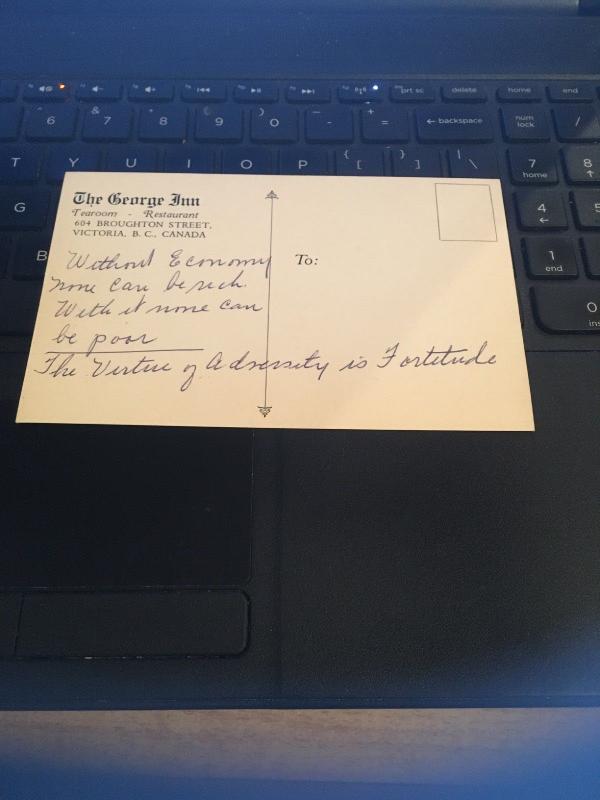 prt sc
delete
home
end
^ 6
& 7
* 8
( 9
) 0
_ -
+ =
← backspace
num lock
/
T
Y
U
I
O
P
{ [
} ]
| \
7 home
8 ↑
G
4 ←
5
B
1 end
2
0 ins
The George Inn
Tearoom - Restaurant
604 BROUGHTON STREET,
VICTORIA, B. C., CANADA
To:
Without Economy
none can be rich.
With it none can
be poor
The Virtue of Adversity is Fortitude